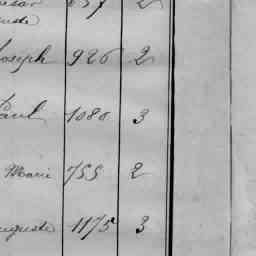 Joseph 926 2
Paul 1080 3
Marie 755 2
Auguste 1175 3